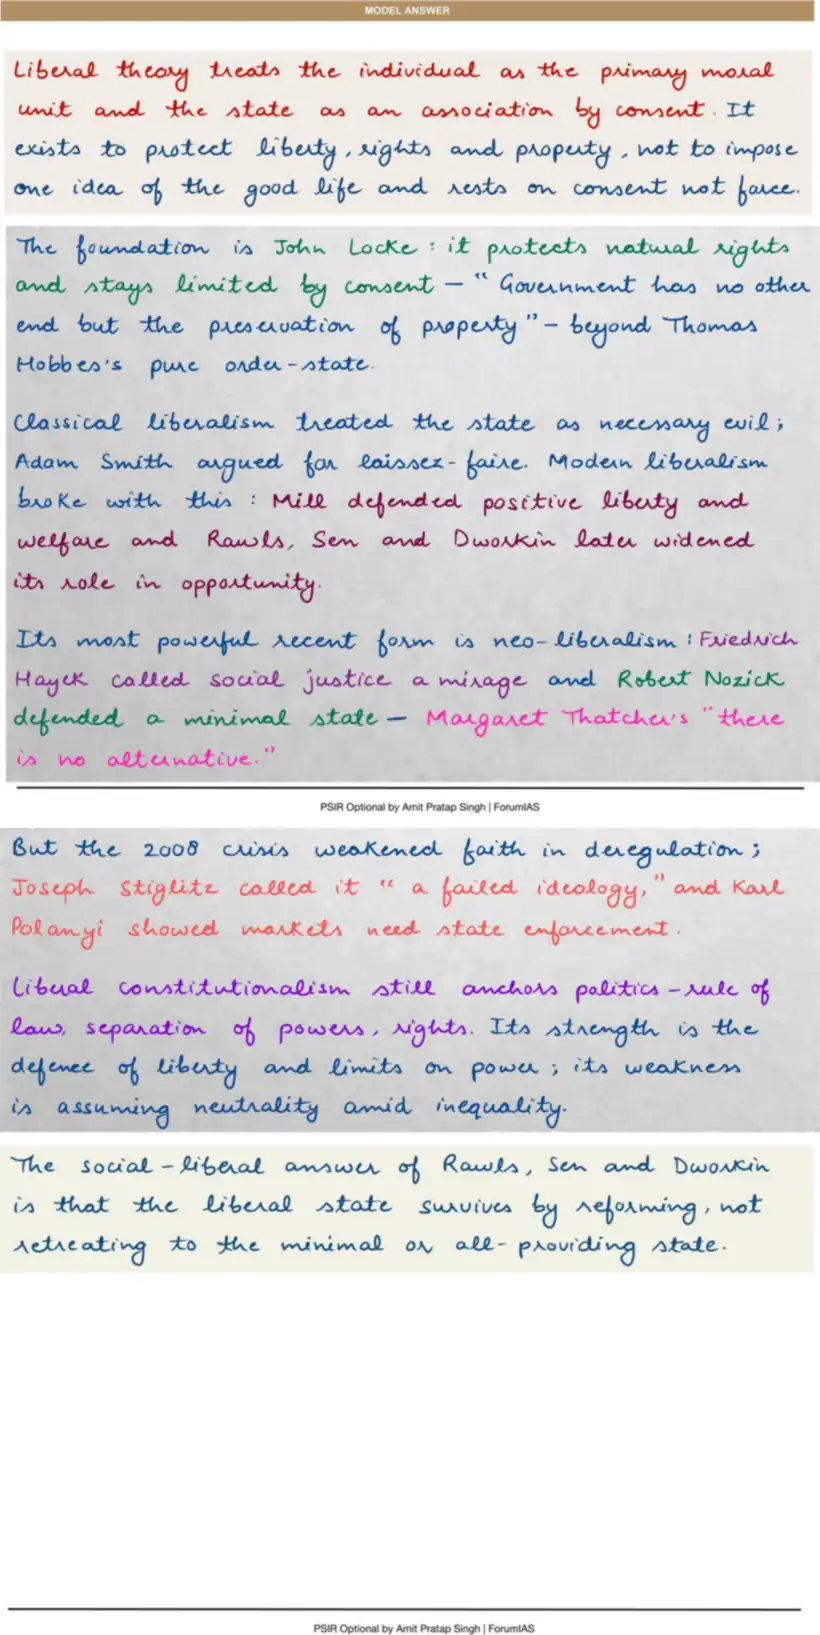 MODEL ANSWER
Liberal theory treats the individual as the primary moral
unit and the state as an association by consent. It
exists to protect liberty, rights and property, not to impose
one idea of the good life and rests on consent not force.
The foundation is John Locke : it protects natural rights
and stays limited by consent – “ Government has no other
end but the preservation of property ” – beyond Thomas
Hobbes's pure order-state.
Classical liberalism treated the state as necessary evil;
Adam Smith argued for laissez-faire. Modern liberalism
broke with this : Mill defended positive liberty and
welfare and Rawls, Sen and Dworkin later widened
its role in opportunity.
Its most powerful recent form is neo-liberalism : Friedrich
Hayek called social justice a mirage and Robert Nozick
defended a minimal state – Margaret Thatcher's “there
is no alternative.”
PSIR Optional by Amit Pratap Singh | ForumIAS
But the 2008 crisis weakened faith in deregulation ;
Joseph Stiglitz called it “ a failed ideology,” and Karl
Polanyi showed markets need state enforcement.
Liberal constitutionalism still anchors politics – rule of
law, separation of powers, rights. Its strength is the
defence of liberty and limits on power ; its weakness
is assuming neutrality amid inequality.
The social-liberal answer of Rawls, Sen and Dworkin
is that the liberal state survives by reforming, not
retreating to the minimal or all-providing state.
PSIR Optional by Amit Pratap Singh | ForumIAS